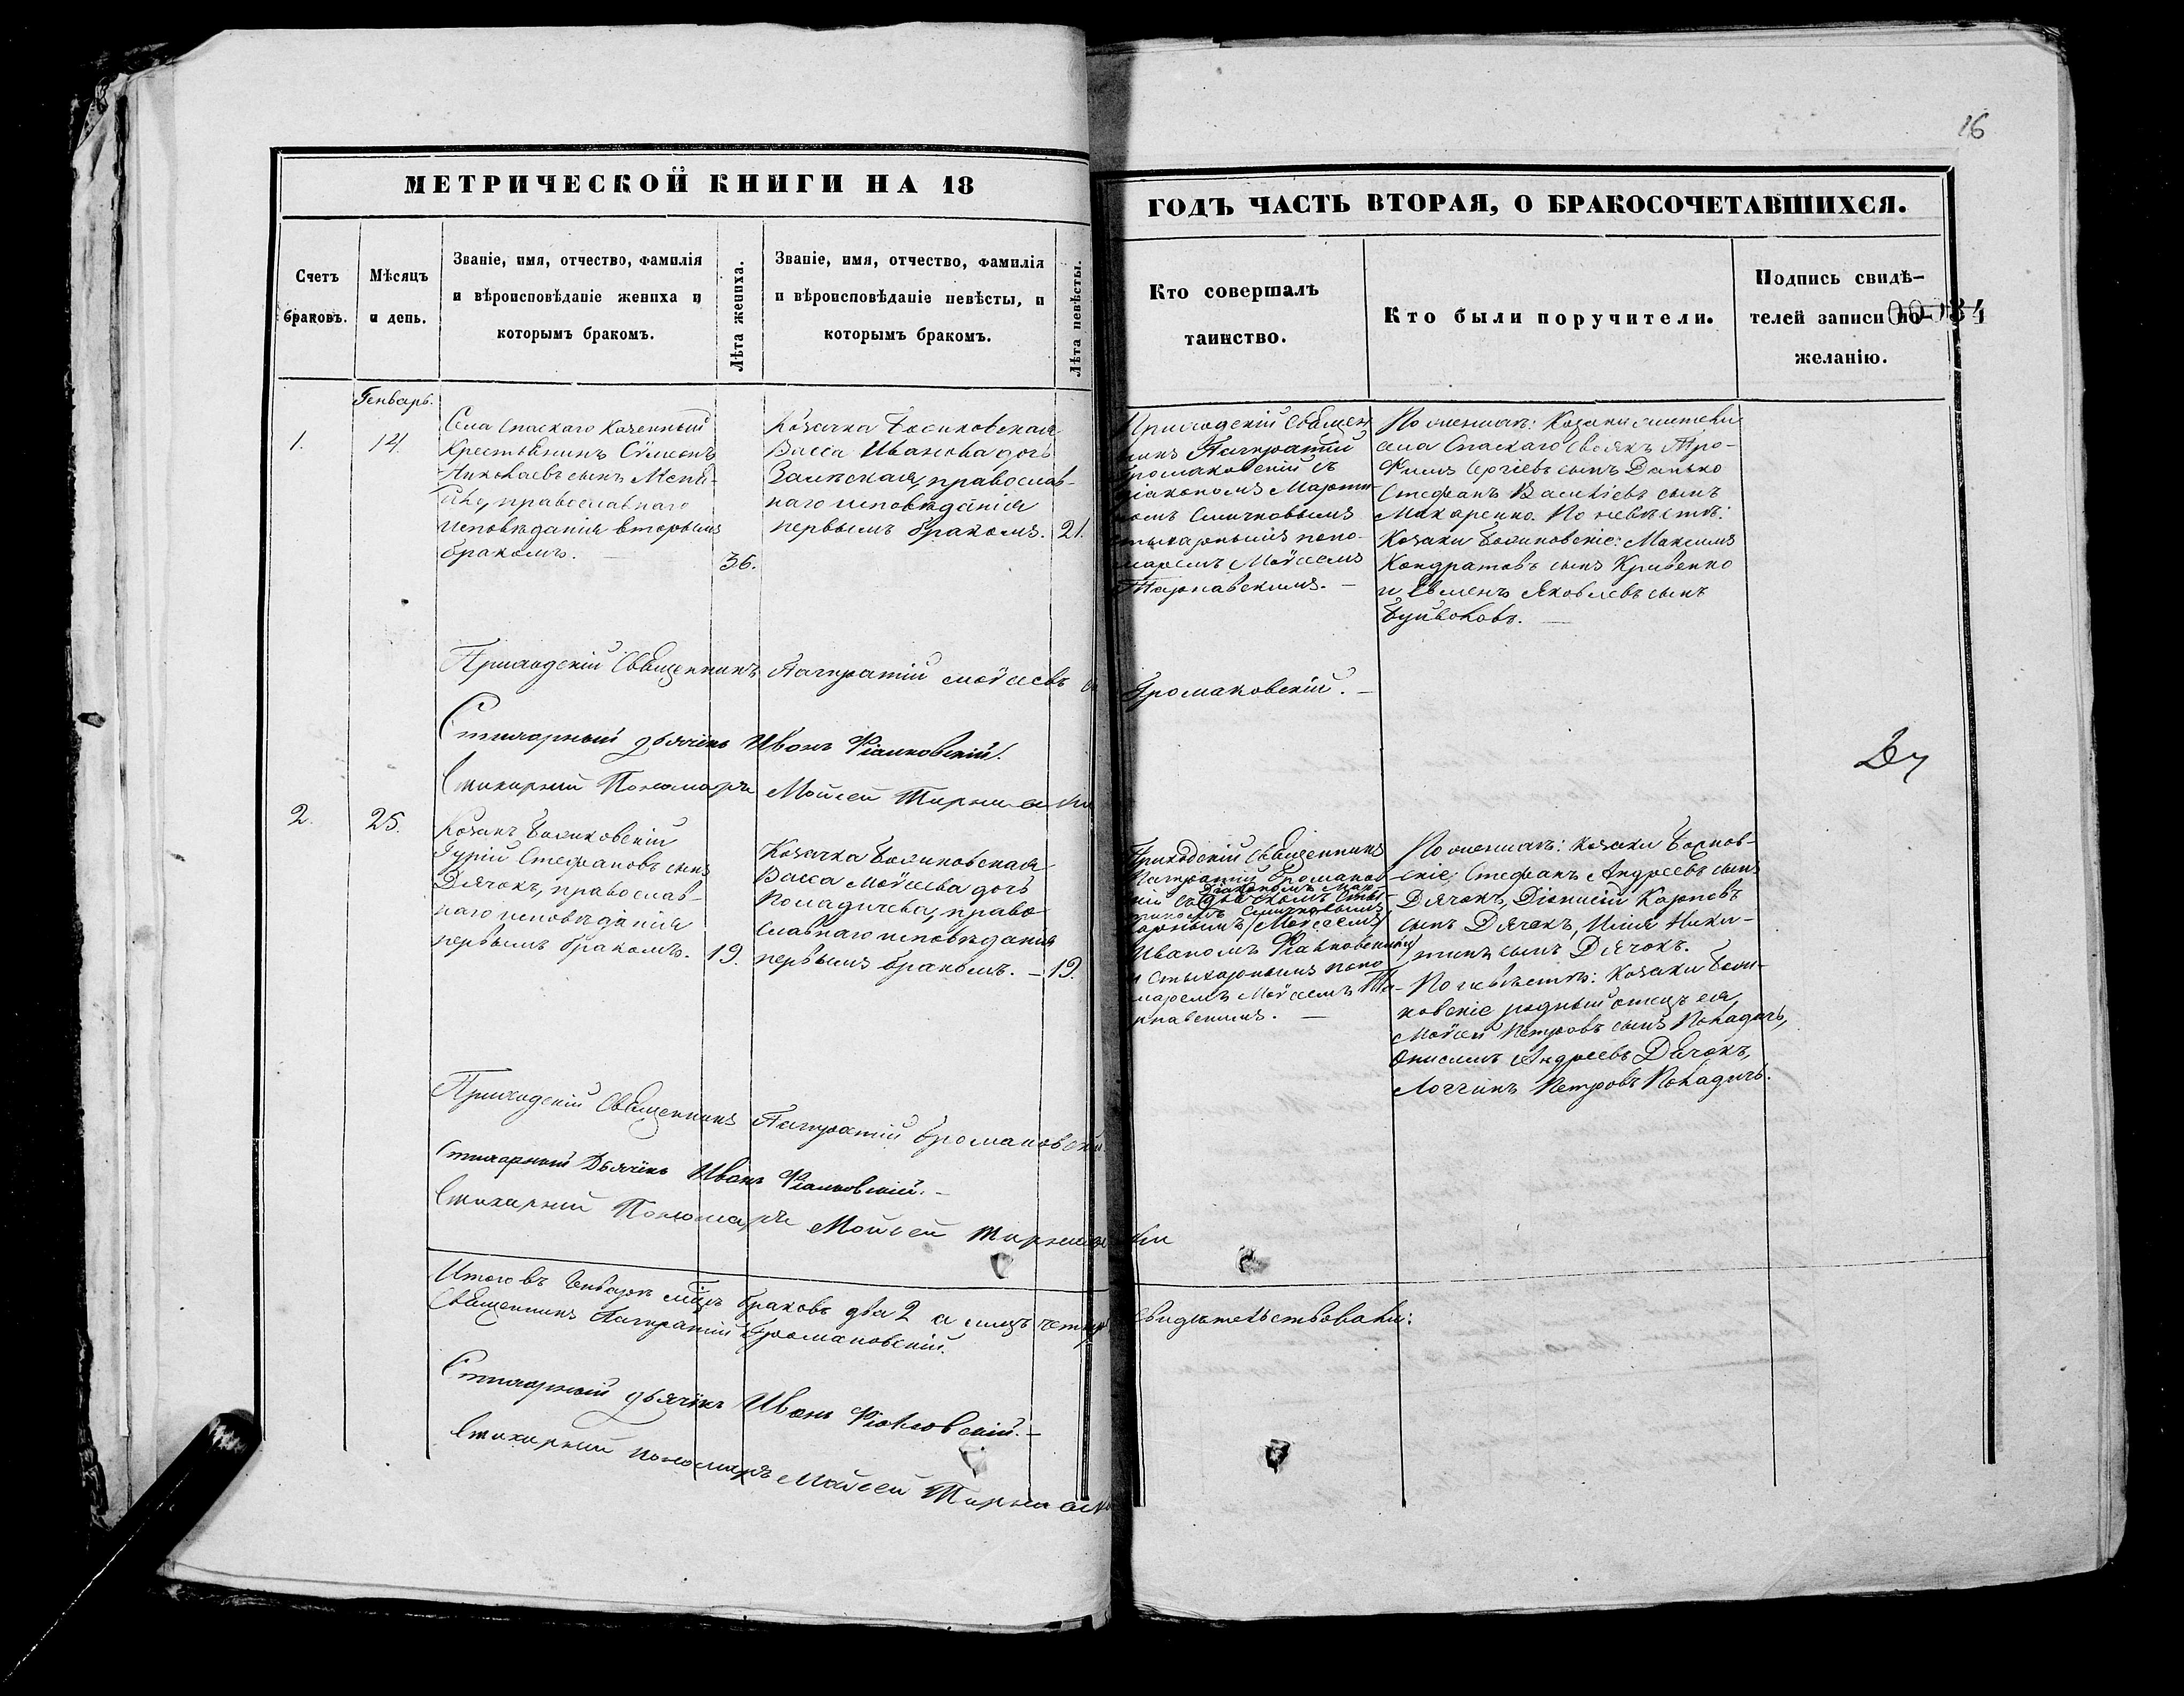 16
МЕТРИЧЕСКОЙ КНИГИ НА 18
ГОДЪ ЧАСТЬ ВТОРАЯ, О БРАКОСОЧЕТАВШИХСЯ.
Счетъ
браковъ.
Мѣсяцъ
и день.
Званіе, имя, отчество, фамилія
и вѣроисповѣданіе жениха и
которымъ бракомъ.
Лѣта жениха.
Званіе, имя, отчество, фамилія
и вѣроисповѣданіе невѣсты, и
которымъ бракомъ.
Лѣта невѣсты.
Кто совершалъ
таинство.
Кто были поручители.
Подпись свидѣ-
телей записи по
желанію.
Генварь.
1.
14.
Села Спаскаго Казенный
Крестьянинъ Сѵмеонъ
Николаевъ сынъ
православнаго
исповѣданія вторымъ
бракомъ.
36.
Козачка
Васса Иванова дочь
православ-
наго исповѣданія
первымъ бракомъ.
21.
Приходскій Священ
никъ Панкратій
Громаковскій съ
Діакономъ Марти-
номъ Смичковымъ
стыхарнымъ поно-
маремъ Моѵсеемъ
Тарнавскимъ. —
По женихѣ: Козаки жители
села Спаскаго Своякъ Тро-
фимъ Сергіевъ сынъ Данько
Стефанъ Василіевъ сынъ
Макаренко. По невѣстѣ:
Козаки Максимъ
Кондратовъ сынъ Кривенко
и Семенъ Яковлевъ сынъ
Буйволовъ. —
Приходскій Священникъ Панкратій Моѵсеевъ Громаковскій. —
Стихарный дьячёкъ Иванъ Фіалковскій.
Стихарный Пономарь Мойсей
2.
25.
Козакъ
Гурій Стефановъ сынъ
Дячокъ, православ-
наго исповѣданія
первымъ бракомъ.
19.
Козачка
Васса Моѵсеева дочь
Поладичева, право
славнаго исповѣданія
первымъ бракомъ. —
19.
Приходскій Священникъ
Панкратій Громаков
Діакономъ Мар-
Смичковымъ
Иваномъ Фіалковскимъ
и Стыхарнымъ поно
маремъ Моѵсеемъ Та-
рнавскимъ. —
По женихѣ: козаки
скіе; Стефанъ Андреевъ сынъ
Дячокъ, Діонисій Карповъ
сынъ Дячокъ, Илія Ники-
тинъ сынъ Дячокъ.
По невѣстѣ: Козаки
ковскіе родный отецъ ея
Моѵсей Петровъ сынъ Поладичъ,
Онисимъ Андреевъ Дячокъ,
Логгинъ Петровъ Поладичъ.
Приходскій Священникъ Панкратій Громаковскій.
Стихарный Дьячёкъ Иванъ Фіалковскій. —
Стихарный Пономарь Мойсей
Итого въ Генварѣ мѣцѣ браковъ два 2 а лицъ четыр свидѣтельствовали:
Священникъ Панкратій Громаковскій.
Стихарный дьячёкъ Иванъ Фіалковскій. —
Стихарный пономарь Мойсей